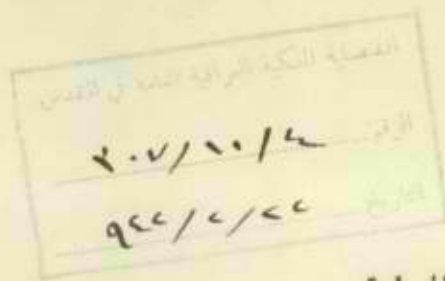 القنصلية الملكية العراقية العامة في القدس
الرقم ٤/١٠/٣٠٧
التاريخ ٢٢/٢/٩٤٤